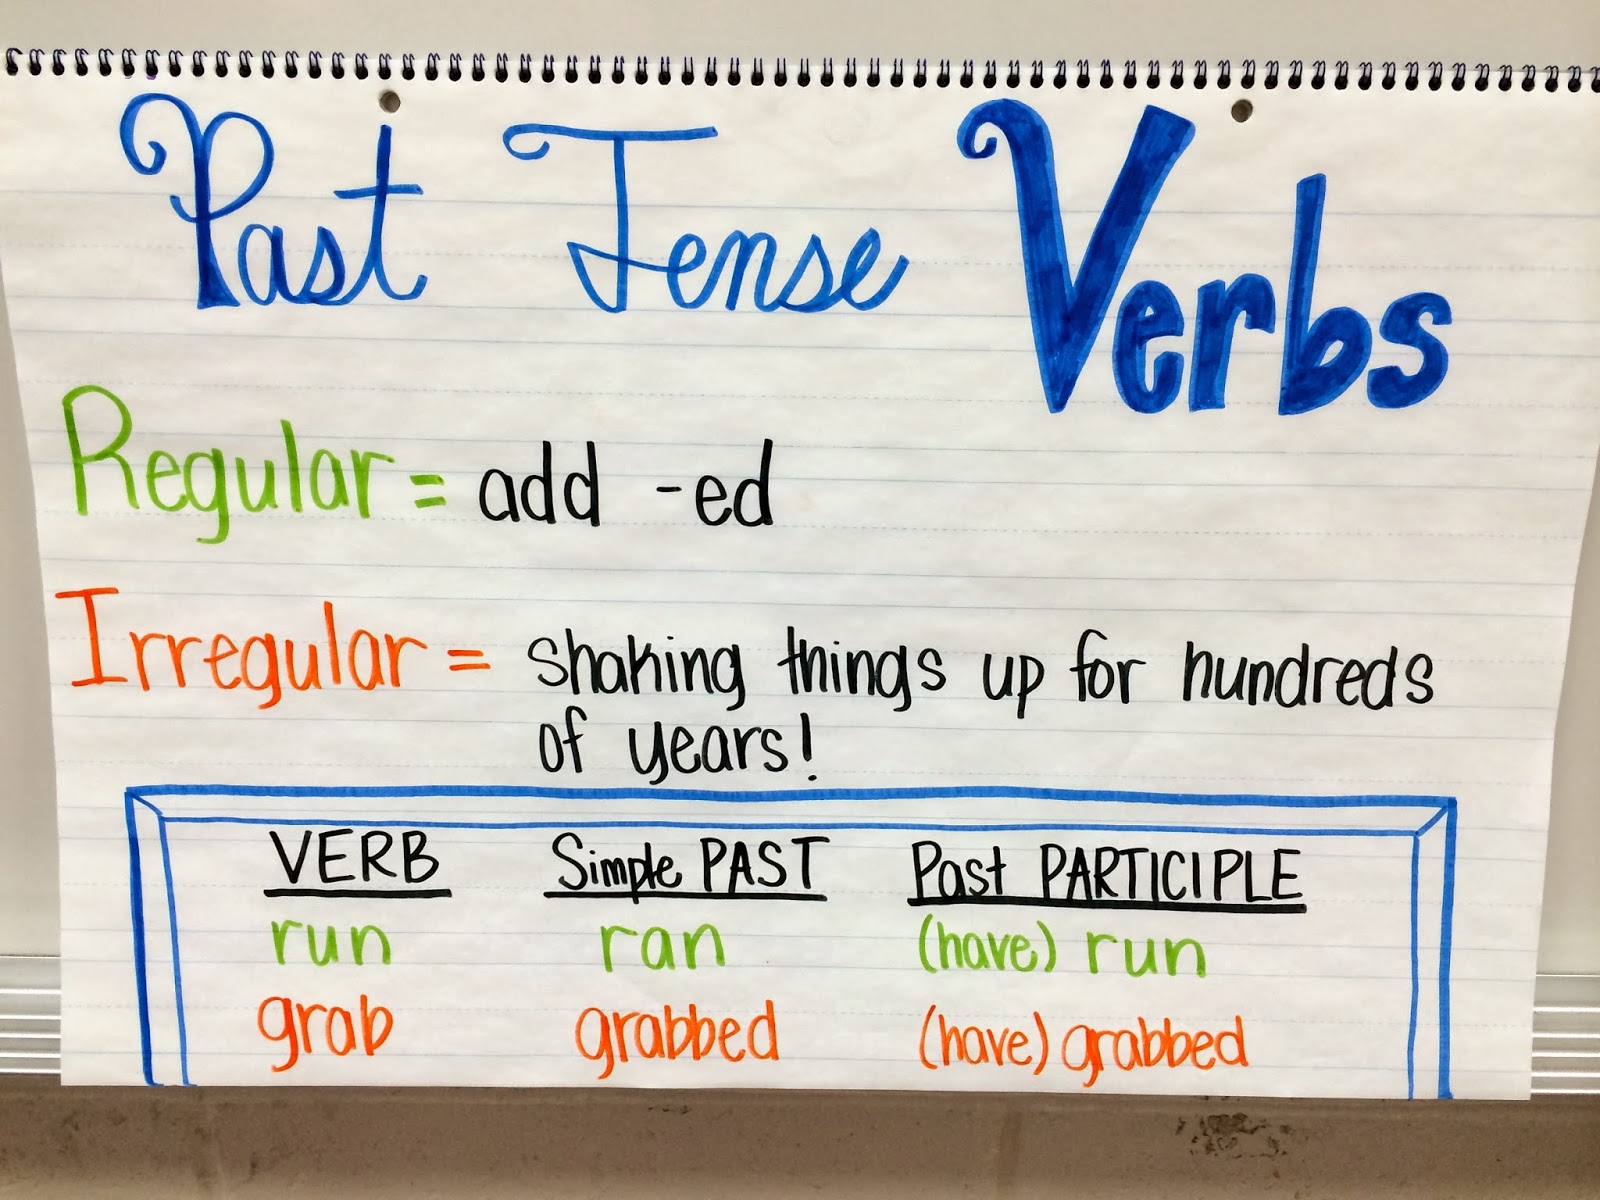 Past Tense Verbs
Regular = add -ed
Irregular = shaking things up for hundreds
of years!
VERB Simple PAST Past PARTICIPLE
run ran (have) run
grab grabbed (have) grabbed